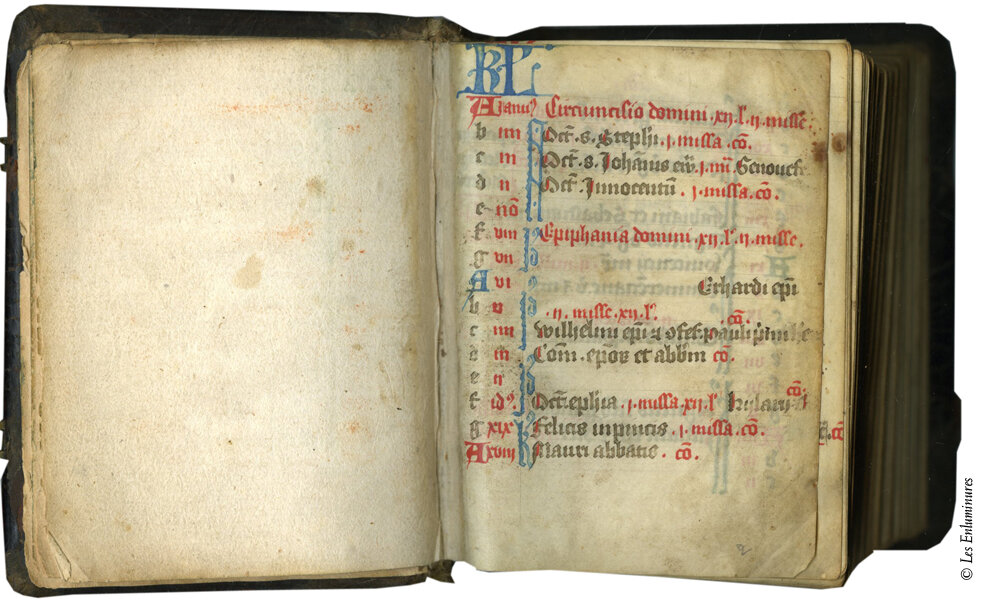 KL
A Janus Circumcisio domini .xij. l'. ij. misse.
b iiij Oct. s. Stephi. j. missa. co.
c iij Oct. s. Johānis ev. j. m. Genovefe
d ij Oct. Innocentū. j. missa. co.
e nō
f viij Epiphania domini. xij. l'. ij. misse.
g vij
A vi Erhardi epi
b v . ij. misse. xij. l'.
c iiij Wilhelmi epi co. pauli primi he
d iij Com. epōꝝ et abbm co.
e ij
f id'. Oct. ephia . j. missa. xij. l' hylarij co.
g xix Felicis in pincis . j. missa. co.
A xviij Mauri abbatis . co.
© Les Enluminures